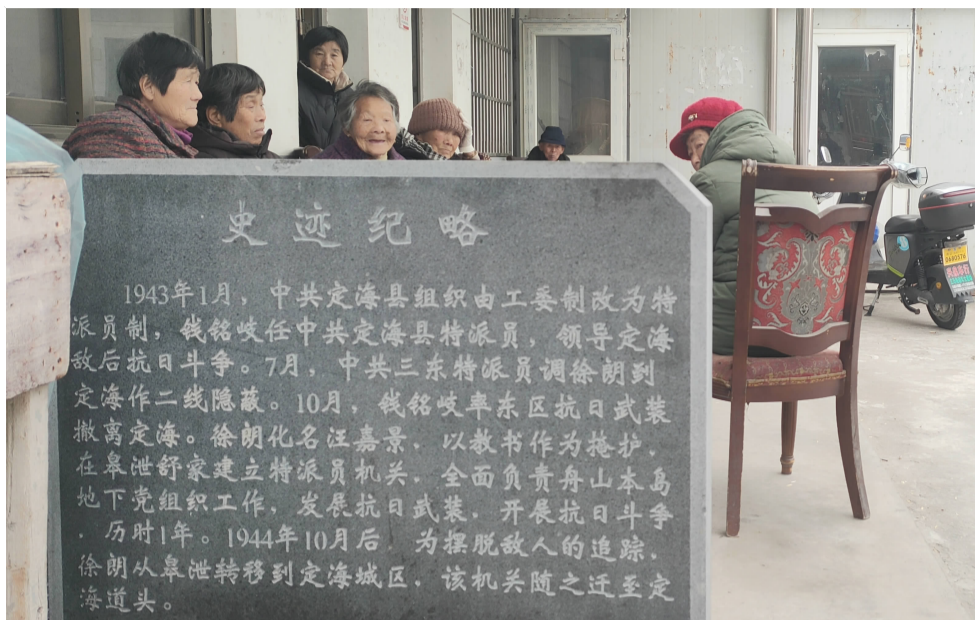 史迹纪略
1943年1月，中共定海县组织由工委制改为特
派员制，钱铭岐任中共定海县特派员，领导定海
敌后抗日斗争。7月，中共三东特派员调徐朗到
定海作二线隐蔽。10月，钱铭岐率东区抗日武装
撤离定海。徐朗化名汪嘉景，以教书作为掩护，
在皋泄舒家建立特派员机关，全面负责舟山本岛
地下党组织工作，发展抗日武装，开展抗日斗争
，历时1年。1944年10月后，为摆脱敌人的追踪，
徐朗从皋泄转移到定海城区，该机关随之迁至定
海道头。